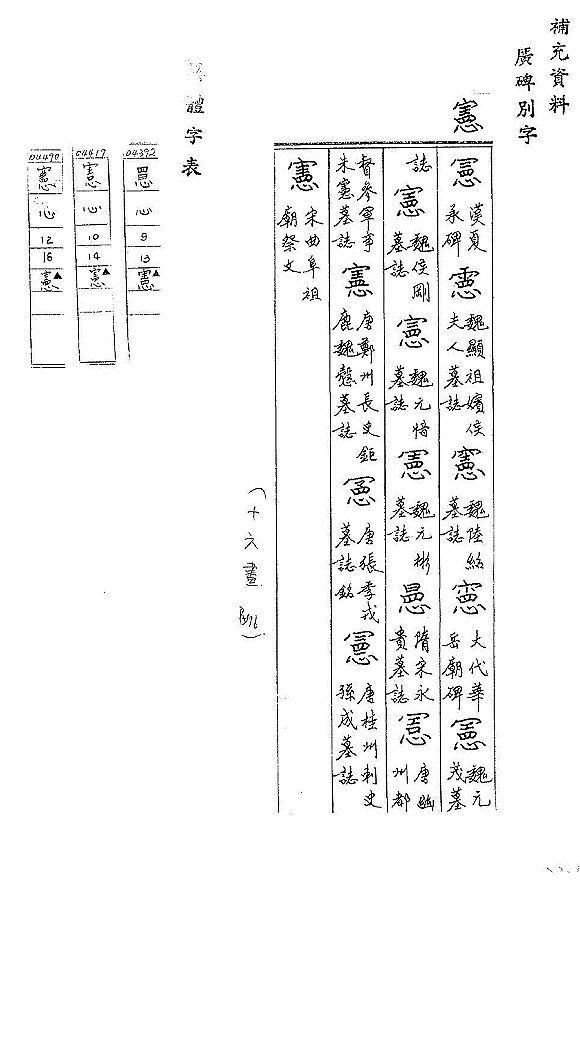 補充資料
廣碑別字
憲
憲 漢夏承碑 憲 魏顯祖嬪侯夫人墓誌 憲 魏陸紹墓誌 憲 大代華岳廟碑 憲 魏元茂墓
誌 憲 魏侯剛墓誌 憲 魏元愔墓誌 憲 魏元彬墓誌 憲 隋宋永貴墓誌 憲 唐幽州都
督參軍事朱憲墓誌 憲 唐鄭州長史鉅鹿魏愨墓誌 憲 唐張季戎墓誌銘 憲 唐桂州刺史孫成墓誌
憲 宋曲阜祖廟祭文
(十六畫)
體字表
04392 心 9 13 憲▲
04419 憲 心 10 14 憲▲
04490 憲 心 12 16 憲▲